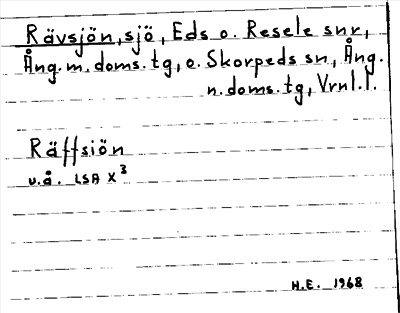 Rävsjön, sjö, Eds o. Resele snr,
Ång. m. doms. tg, o. Skorpeds sn, Ång.
n. doms. tg, Vrnl. l.
Räffsiön
u.å. LSA X³
H.E. 1968